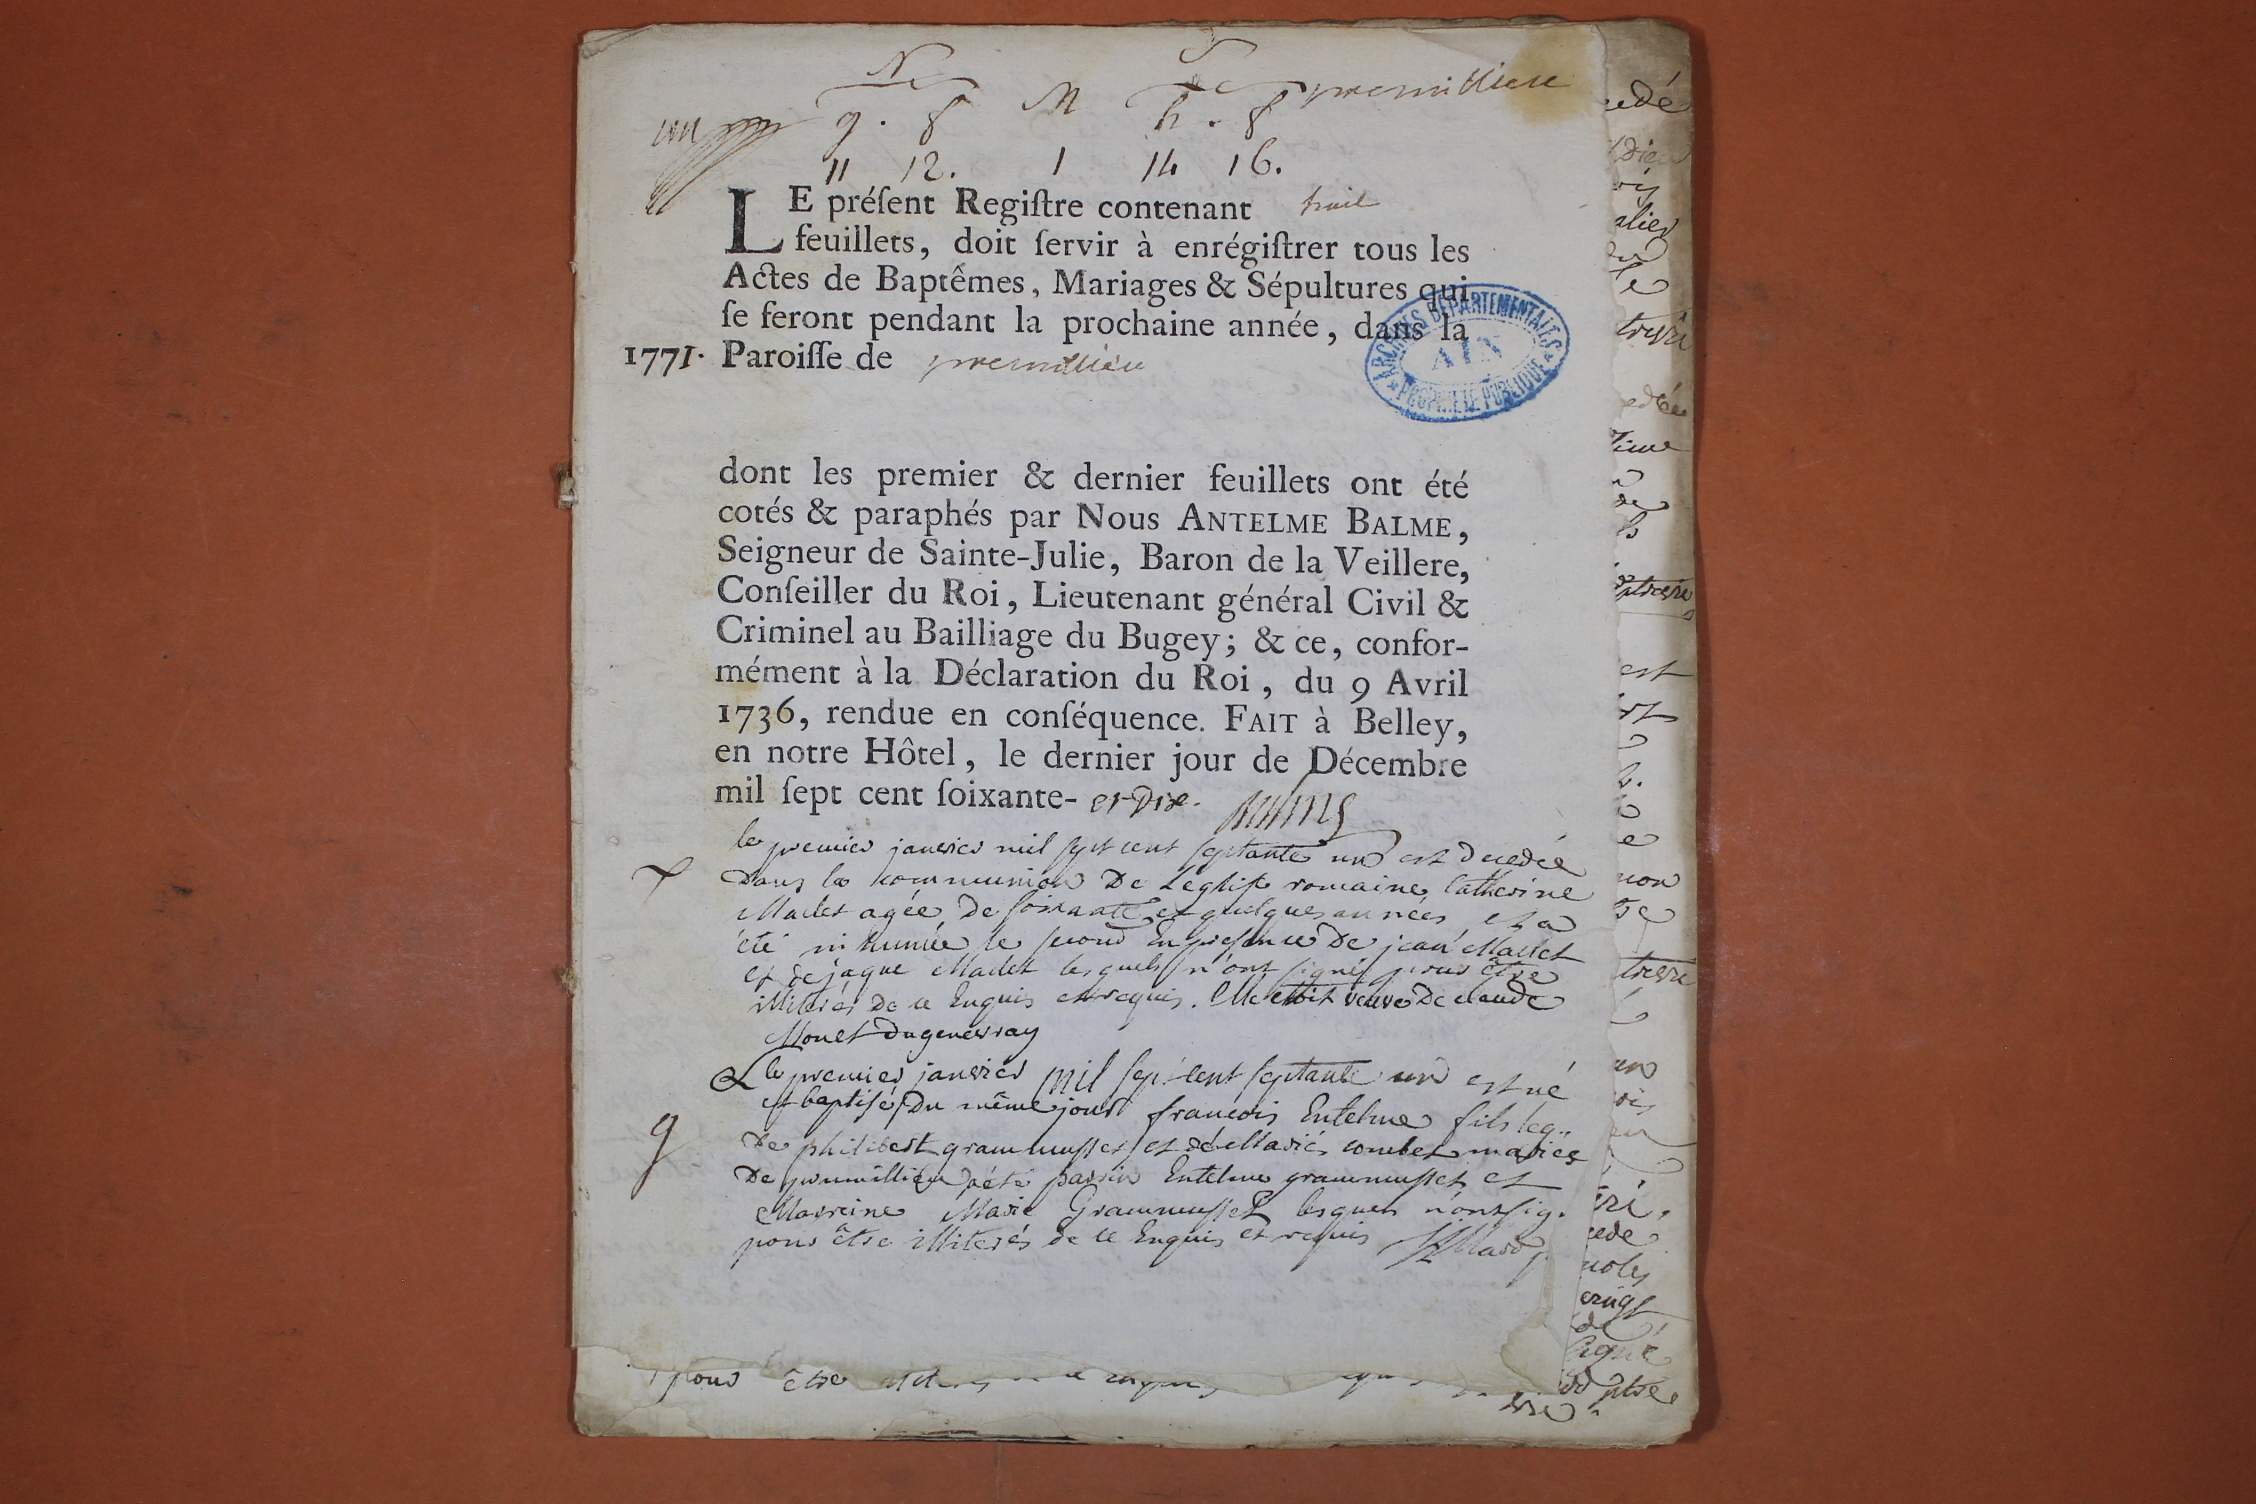 N S
g. f M h. f premillieu
un
11 12. 1 14 16.
LE préſent Regiſtre contenant huit
feuillets, doit ſervir à enrégiſtrer tous les
Actes de Baptêmes, Mariages & Sépultures qui
ſe feront pendant la prochaine année, dans la
1771. Paroiſſe de premillieu
ARCHIVES DÉPARTEMENTALES
AIN
PROPRIÉTÉ PUBLIQUE
dont les premier & dernier feuillets ont été
cotés & paraphés par Nous ANTELME BALME,
Seigneur de Sainte-Julie, Baron de la Veillere,
Conſeiller du Roi, Lieutenant général Civil &
Criminel au Bailliage du Bugey; & ce, confor-
mément à la Déclaration du Roi, du 9 Avril
1736, rendue en conſéquence. FAIT à Belley,
en notre Hôtel, le dernier jour de Décembre
mil ſept cent ſoixante- et Dix.
le premier janvier mil sept cent septante un est decedée
Dans la communion De Leglise romaine Catherine
Maclet agée De soixante et quelques années et a
été inhumée le second En presence De jean Maclet
et de jaque Maclet lesquels n'ont signé pour être
illiterés De ce Enquis et requis. Elle etoit veuve De claude
Monet Dugenevray
Le premier janvier mil sept cent septante un est né
et baptisé Du même jour francois Entelme fils leg..
De philibert grammusset et de Marie combet mariés
De premillieu a été parrin Entelme grammusset et
Marreine Marie Grammusset lesquels n'ont sig.
pour être illiterés de ce Enquis et requis
g
pour être